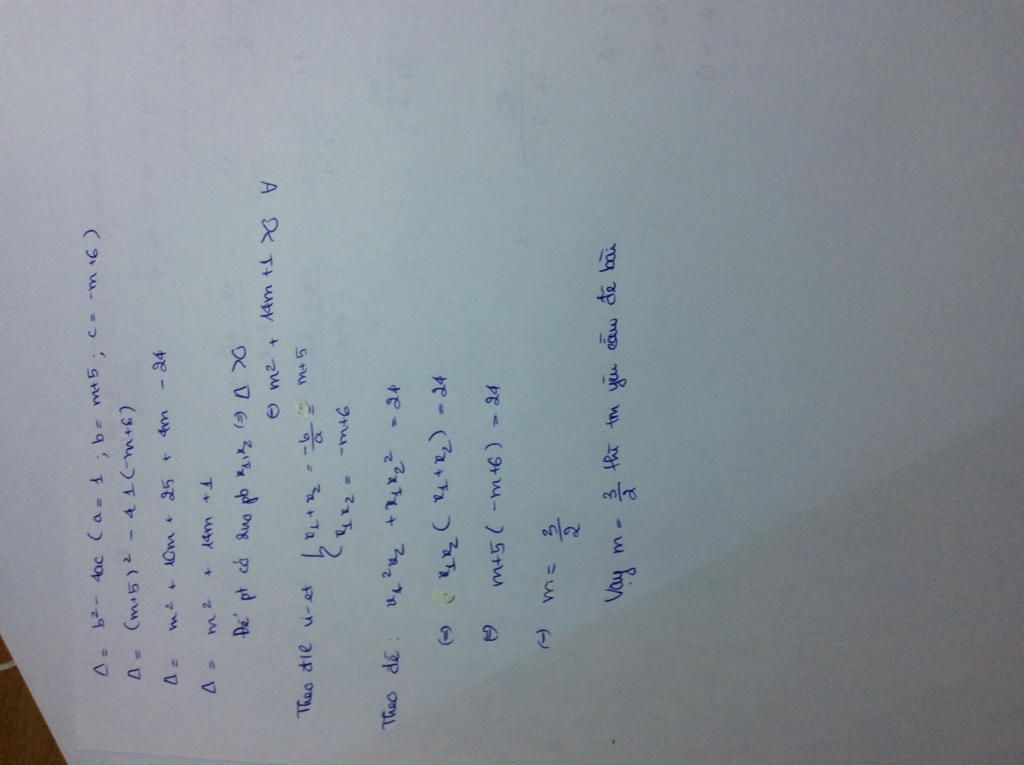 Δ = b² - 4ac (a = 1 ; b = m+5 ; c = -m+6)
Δ = (m+5)² - 4.1(-m+6)
Δ = m² + 10m + 25 + 4m - 24
Δ = m² + 14m + 1
Để pt có 2no pb x₁,x₂ (=) Δ >0
(=) m² + 14m + 1 >0 ∀
Theo đlí vi-et { x₁ + x₂ = -b/a = m+5
x₁x₂ = -m+6
Theo đề : x₁²x₂ + x₁x₂² = 24
(=) x₁x₂ ( x₁ + x₂ ) = 24
(=) m+5 ( -m+6 ) = 24
(=) m = 3/2
Vậy m = 3/2 thì tm yêu cầu đề bài